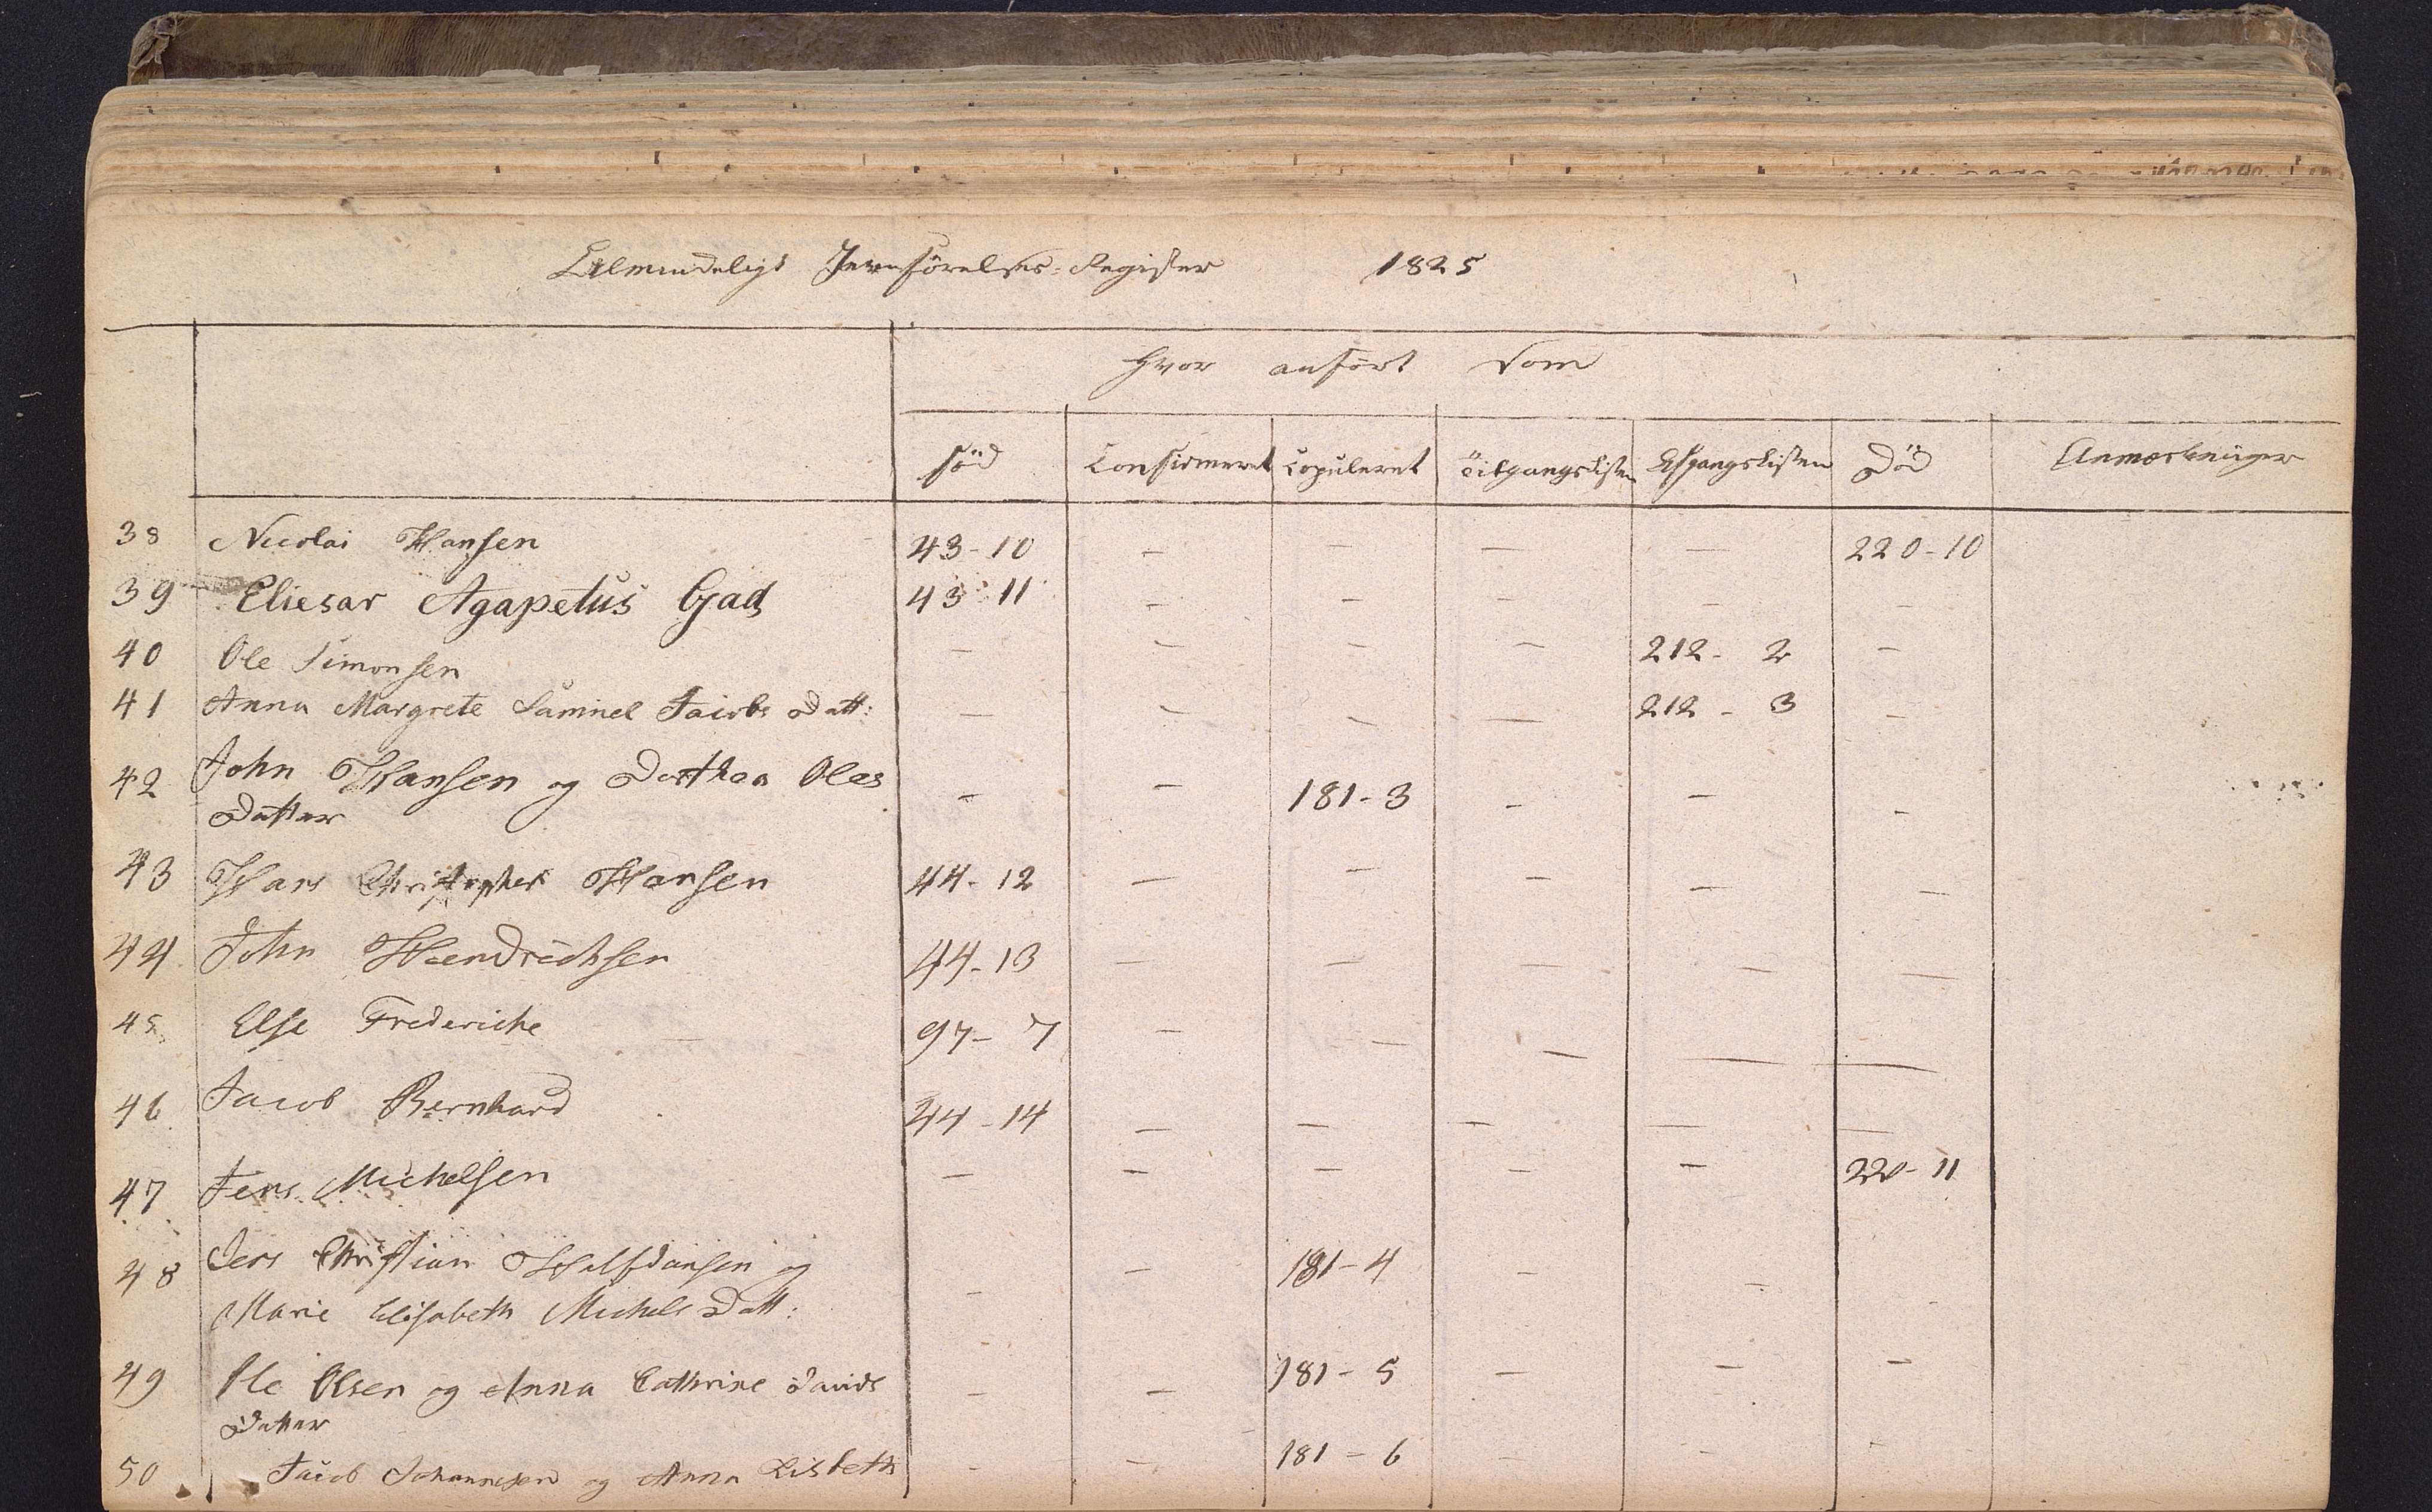 Almindeligt Jevnförelses-Register 1825
Hvor anfört som
född Confirmeret Copuleret Tilgangslisten Afgangslisten Död Anmærkninger
38 Nicolai Hansen 43-10 - - - - 220-10
39 Eliesar Agapetus Gad 43-11 - - - - -
40 Ole Simonsen - - - - 212-2 -
41 Anna Margrete Samuel Jacobs Datt: - - - - 212-3 -
42 John Hansen og Dorthea Oles - - 181-3 - - -
Datter
43 Hans Christopher Hansen 44-12 - - - - -
44 John Hendrichsen 44-13 - - - - -
45 Else Frederiche 97-7 - - - - -
46 Jacob Bernhard 44-14 - - - - -
47 Jens Michelsen - - - - - 220-11
48 Jens Christian Halfdansen og - - 181-4 - - -
Marie Elisabeth Michels Datt:
49 Ole Olsen og Anna Cathrine Davids - - 181-5 - - -
Datter
50 Jacob Johannesen og Anna Lisbeth - - 181-6 - - -